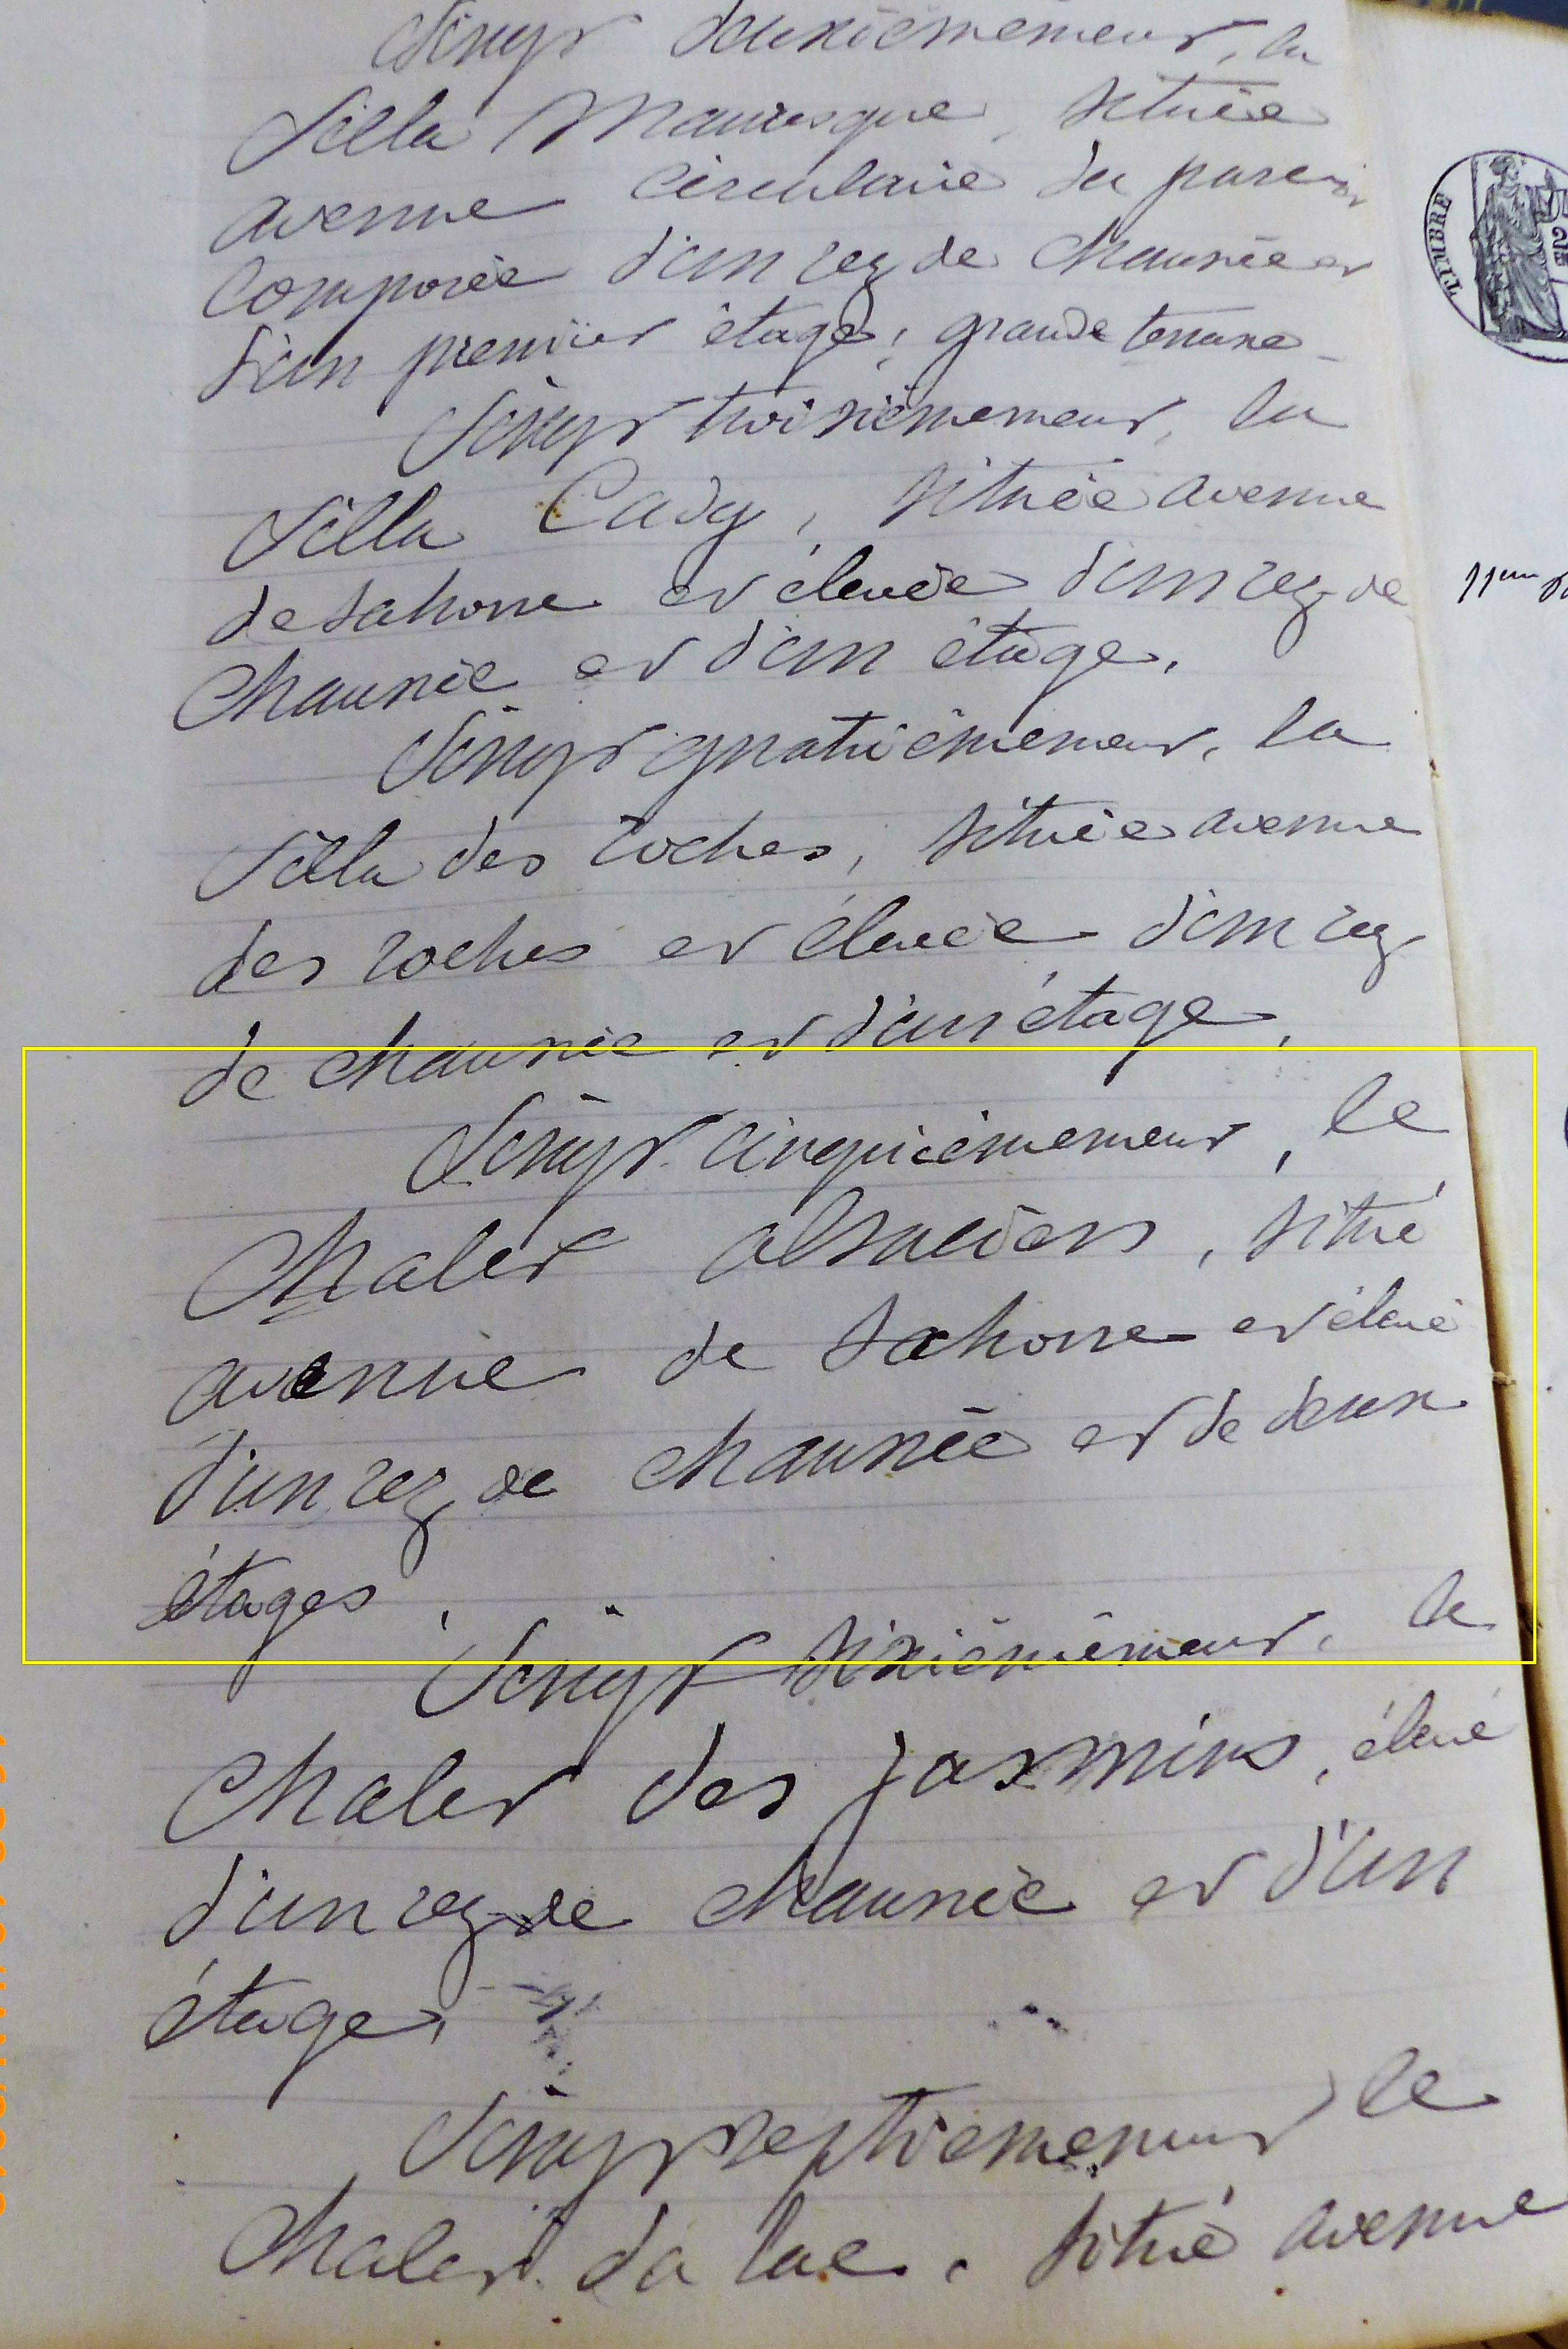 Vingt deuxièmement, la
Villa Mauresque, située
avenue circulaire du parc et
composée d'un rez de chaussée et
d'un premier étage, grande terrasse
Vingt troisièmement, la
Villa Cady, située avenue
de Lahorre et élevée d'un rez de
chaussée et d'un étage.
Vingt quatrièmement, la
Villa des roches, située avenue
des roches et élevée d'un rez
de chaussée et d'un étage,
Vingt cinquièmement, le
Chalet alsacien, situé
avenue de Lahorre et élevé
d'un rez de chaussée et de deux
étages.
Vingt sixièmement, le
Chalet des jasmins, élevé
d'un rez de chaussée et d'un
étage,
Vingt septièmement le
Chalet du lac, situé avenue
TIMBRE